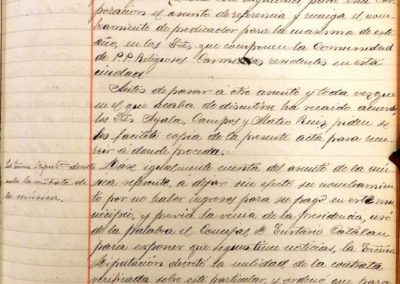 poración el asunto de referencia y recaiga el nom-
bramiento de predicador para la cuaresma de este
año, en los Sres que componen la Comunidad
de P.P. Religiosos Carmelitas residentes en esta
ciudad.
Antes de pasar á otro asunto y toda vez que
en el que acaba de discutirse ha recaido acuerdo
los Sres Ayala, Campos y Mateo Ruiz piden se
les facilite copia de la presente acta para recu-
rrir a donde proceda.
Dase igualmente cuenta del asunto de la mú-
sica referente a dejar sin efecto su nombramien-
to por no haber ingresos para su pago en este mu-
nicipio, y previa la venia de la presidencia, usó
de la palabra el Concejal D. Eustasio Catalan
para exponer que segun tiene noticias, la Excma
Diputación decretó la nulidad de la contrata
verificada sobre este particular, y ordenó que para
la contrata de
la música.